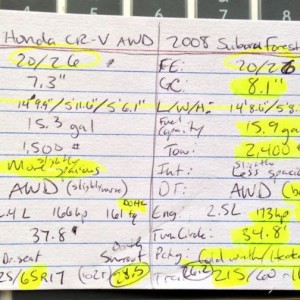 Honda CR-V AWD 2008 Subaru Forest
20/26 FE: 20/26
7.3" GC: 8.1"
14'9.9"/5'11.6"/5'6.1" L/W/H: 14'8.6"/5'8.
15.3 gal Fuel Capacity 15.9 ga
1,500# Tow: 2,400
More slightly spacious Int: Slightly Less spacio
AWD (slightly worse) DT: AWD (be
.4L 166 hp 161 tq DOHC Eng: 2.5L 173hp
37.8' Turn Circle: 34.8'
Dr. seat Sunroof Pckg: Cold weather/Heate
25/65R17 (102T) 28.5 Tires 26.2 215/60-